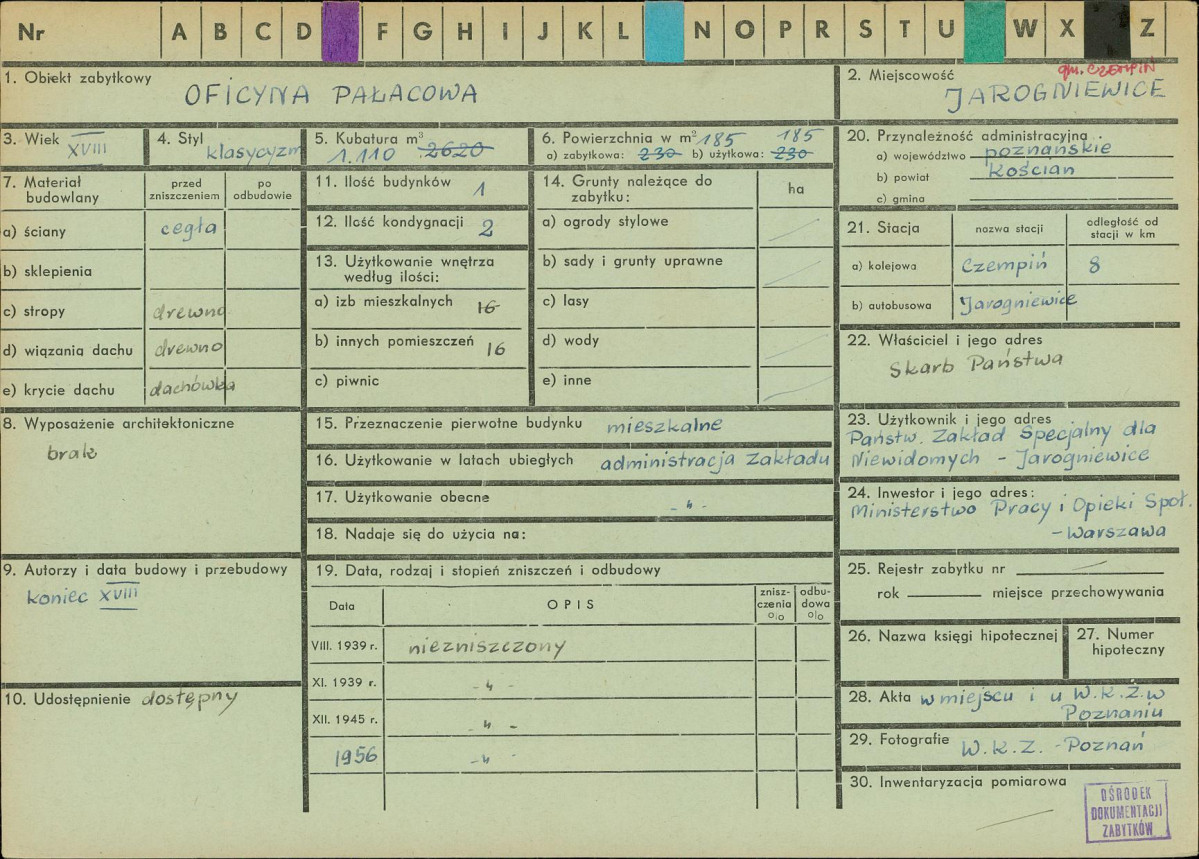 Nr A B C D F G H I J K L N O P R S T U W X Z
1. Obiekt zabytkowy
OFICYNA PAŁACOWA
2. Miejscowość
gm. CZEMPIŃ
JAROGNIEWICE
3. Wiek
XVIII
4. Styl
klasycyzm
5. Kubatura m³
1.110 2620
6. Powierzchnia w m² 185 185
a) zabytkowa: 230 b) użytkowa: 230
7. Materiał budowlany
przed zniszczeniem
po odbudowie
a) ściany cegła
b) sklepienia
c) stropy drewno
d) wiązania dachu drewno
e) krycie dachu dachówka
8. Wyposażenie architektoniczne
brak
9. Autorzy i data budowy i przebudowy
koniec XVIII
10. Udostępnienie dostępny
11. Ilość budynków 1
12. Ilość kondygnacji 2
13. Użytkowanie wnętrza
według ilości:
a) izb mieszkalnych 16
b) innych pomieszczeń 16
c) piwnic
14. Grunty należące do
zabytku:
ha
a) ogrody stylowe
b) sady i grunty uprawne
c) lasy
d) wody
e) inne
15. Przeznaczenie pierwotne budynku mieszkalne
16. Użytkowanie w latach ubiegłych administracja Zakładu
17. Użytkowanie obecne -"-
18. Nadaje się do użycia na:
19. Data, rodzaj i stopień zniszczeń i odbudowy
Data
OPIS
znisz-
czenia
%
odbu-
dowa
%
VIII. 1939 r. niezniszczony
XI. 1939 r. -"-
XII. 1945 r. -"-
1956 -"-
20. Przynależność administracyjna
a) województwo poznańskie
b) powiat Kościan
c) gmina
21. Stacja
nazwa stacji
odległość od
stacji w km
a) kolejowa Czempiń 8
b) autobusowa Jarogniewice
22. Właściciel i jego adres
Skarb Państwa
23. Użytkownik i jego adres
Państw. Zakład Specjalny dla
Niewidomych - Jarogniewice
24. Inwestor i jego adres:
Ministerstwo Pracy i Opieki Społ.
- Warszawa
25. Rejestr zabytku nr
rok miejsce przechowywania
26. Nazwa księgi hipotecznej
27. Numer
hipoteczny
28. Akta w miejscu i u W.K.Z. w
Poznaniu
29. Fotografie W.K.Z. - Poznań
30. Inwentaryzacja pomiarowa
OŚRODEK
DOKUMENTACJI
ZABYTKÓW